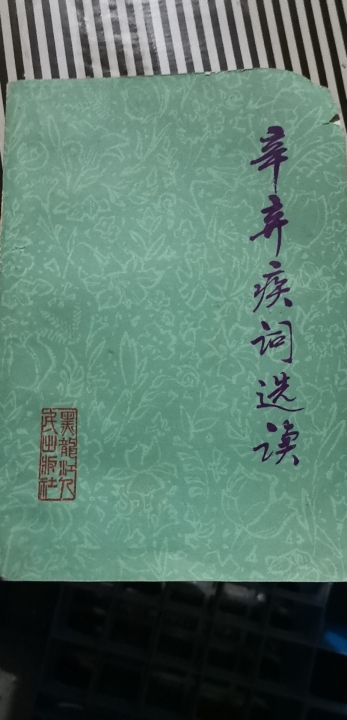 辛弃疾词选读
黑龍江人
民出版社